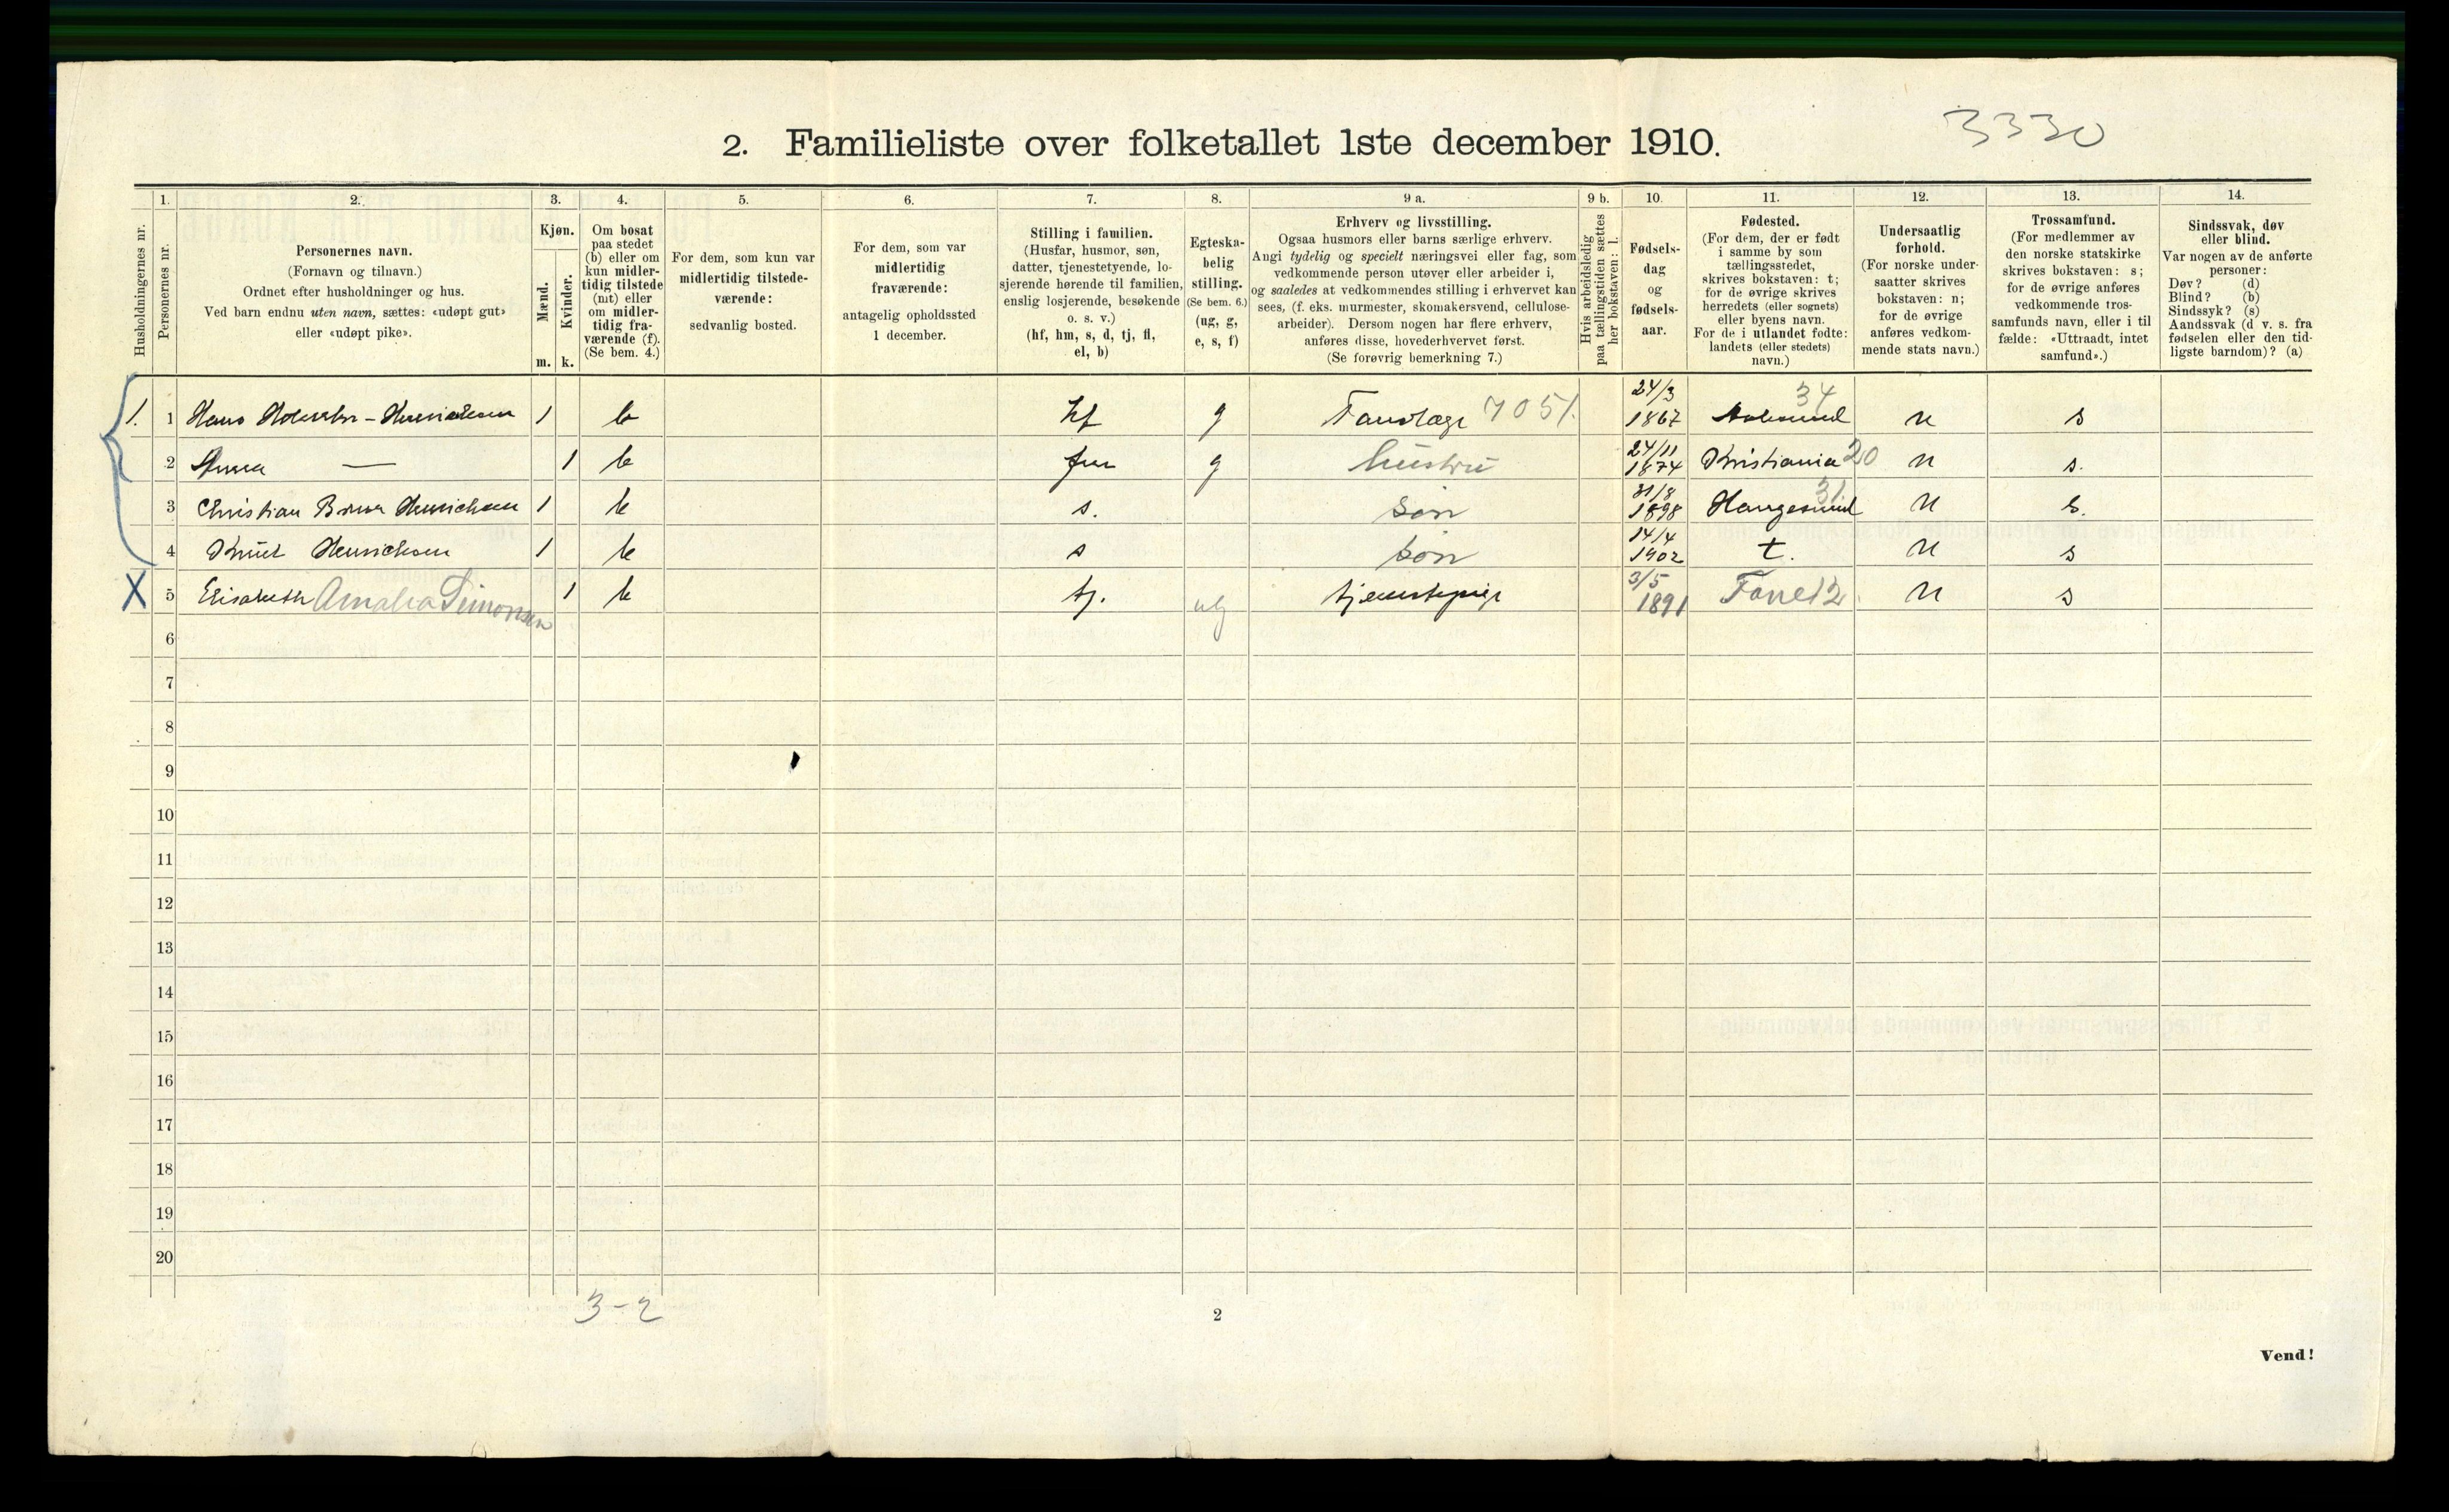 3330
2. Familieliste over folketallet 1ste december 1910.
Husholdningernes nr.
1.
Personernes nr.
2.
Personernes navn.
(Fornavn og tilnavn.)
Ordnet efter husholdninger og hus.
Ved barn endnu uten navn, sættes: «udøpt gut»
eller «udøpt pike».
3.
Kjøn.
Mænd.
Kvinder.
m. k.
4.
Om bosat
paa stedet
(b) eller om
kun midler-
tidig tilstede
(mt) eller
om midler-
tidig fra-
værende (f).
(Se bem. 4.)
5.
For dem, som kun var
midlertidig tilstede-
værende:
sedvanlig bosted.
6.
For dem, som var
midlertidig
fraværende:
antagelig opholdssted
1 december.
7.
Stilling i familien.
(Husfar, husmor, søn,
datter, tjenestetyende, lo-
sjerende hørende til familien,
enslig losjerende, besøkende
o. s. v.)
(hf, hm, s, d, tj, fl,
el, b)
8.
Egteska-
belig
stilling.
(Se bem. 6.)
(ug, g,
e, s, f)
9 a.
Erhverv og livsstilling.
Ogsaa husmors eller barns særlige erhverv.
Angi tydelig og specielt næringsvei eller fag, som
vedkommende person utøver eller arbeider i,
og saaledes at vedkommendes stilling i erhvervet kan
sees, (f. eks. murmester, skomakersvend, cellulose-
arbeider). Dersom nogen har flere erhverv,
anføres disse, hovederhvervet først.
(Se forøvrig bemerkning 7.)
9 b.
Hvis arbeidsledig
paa tællingstiden sættes
her bokstaven: l.
10.
Fødsels-
dag
og
fødsels-
aar.
11.
Fødested.
(For dem, der er født
i samme by som
tællingsstedet,
skrives bokstaven: t;
for de øvrige skrives
herredets (eller sognets)
eller byens navn.
For de i utlandet fødte:
landets (eller stedets)
navn.)
12.
Undersaatlig
forhold.
(For norske under-
saatter skrives
bokstaven: n;
for de øvrige
anføres vedkom-
mende stats navn.)
13.
Trossamfund.
(For medlemmer av
den norske statskirke
skrives bokstaven: s;
for de øvrige anføres
vedkommende tros-
samfunds navn, eller i til
fælde: «Uttraadt, intet
samfund».)
14.
Sindssvak, døv
eller blind.
Var nogen av de anførte
personer:
Døv? (d)
Blind? (b)
Sindssyk? (s)
Aandssvak (d v. s. fra
fødselen eller den tid-
ligste barndom)? (a)
1. 1 Hans Henrichsen 1 b hf g Tandlæge 7051. 24/3 1867 Aalesund 34 n s
2 Anna — 1 b fru g hustru 24/11 1874 Kristiania 20 n s.
3 Christian Henrichsen 1 b s. søn 31/8 1898 Haugesund 31 n s.
4 Knut Henrichsen 1 b s søn 14/4 1902 t. n s
X 5 Elisabeth Amalia Simonsen 1 b tj. ug tjenestepige 3/5 1891 12 n s
6
7
8
9
10
11
12
13
14
15
16
17
18
19
20
3-2
2
Vend!